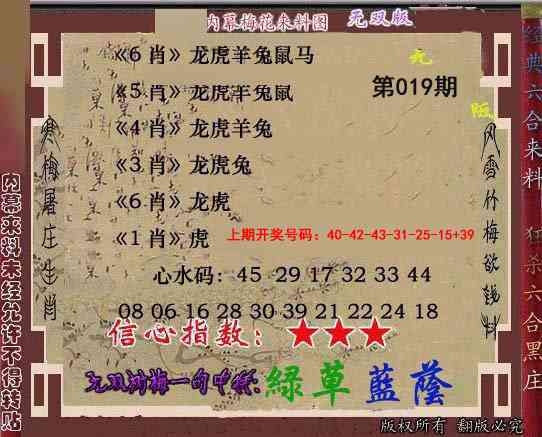 内幕梅花来料图 无双版
《6肖》龙虎羊兔鼠马
《5肖》龙虎羊兔鼠
第019期
《4肖》龙虎羊兔
《3肖》龙虎兔
《6肖》龙虎
《1肖》虎
上期开奖号码：40-42-43-31-25-15+39
心水码：45 29 17 32 33 44
08 06 16 28 30 39 21 22 24 18
信心指数：★★★
綠草藍蔭
版权所有 翻版必究
寒梅屠庄生肖
风雪竹梅欲钱料
内幕来料未经允许不得转贴
经典六合来料
狂杀六合黑庄